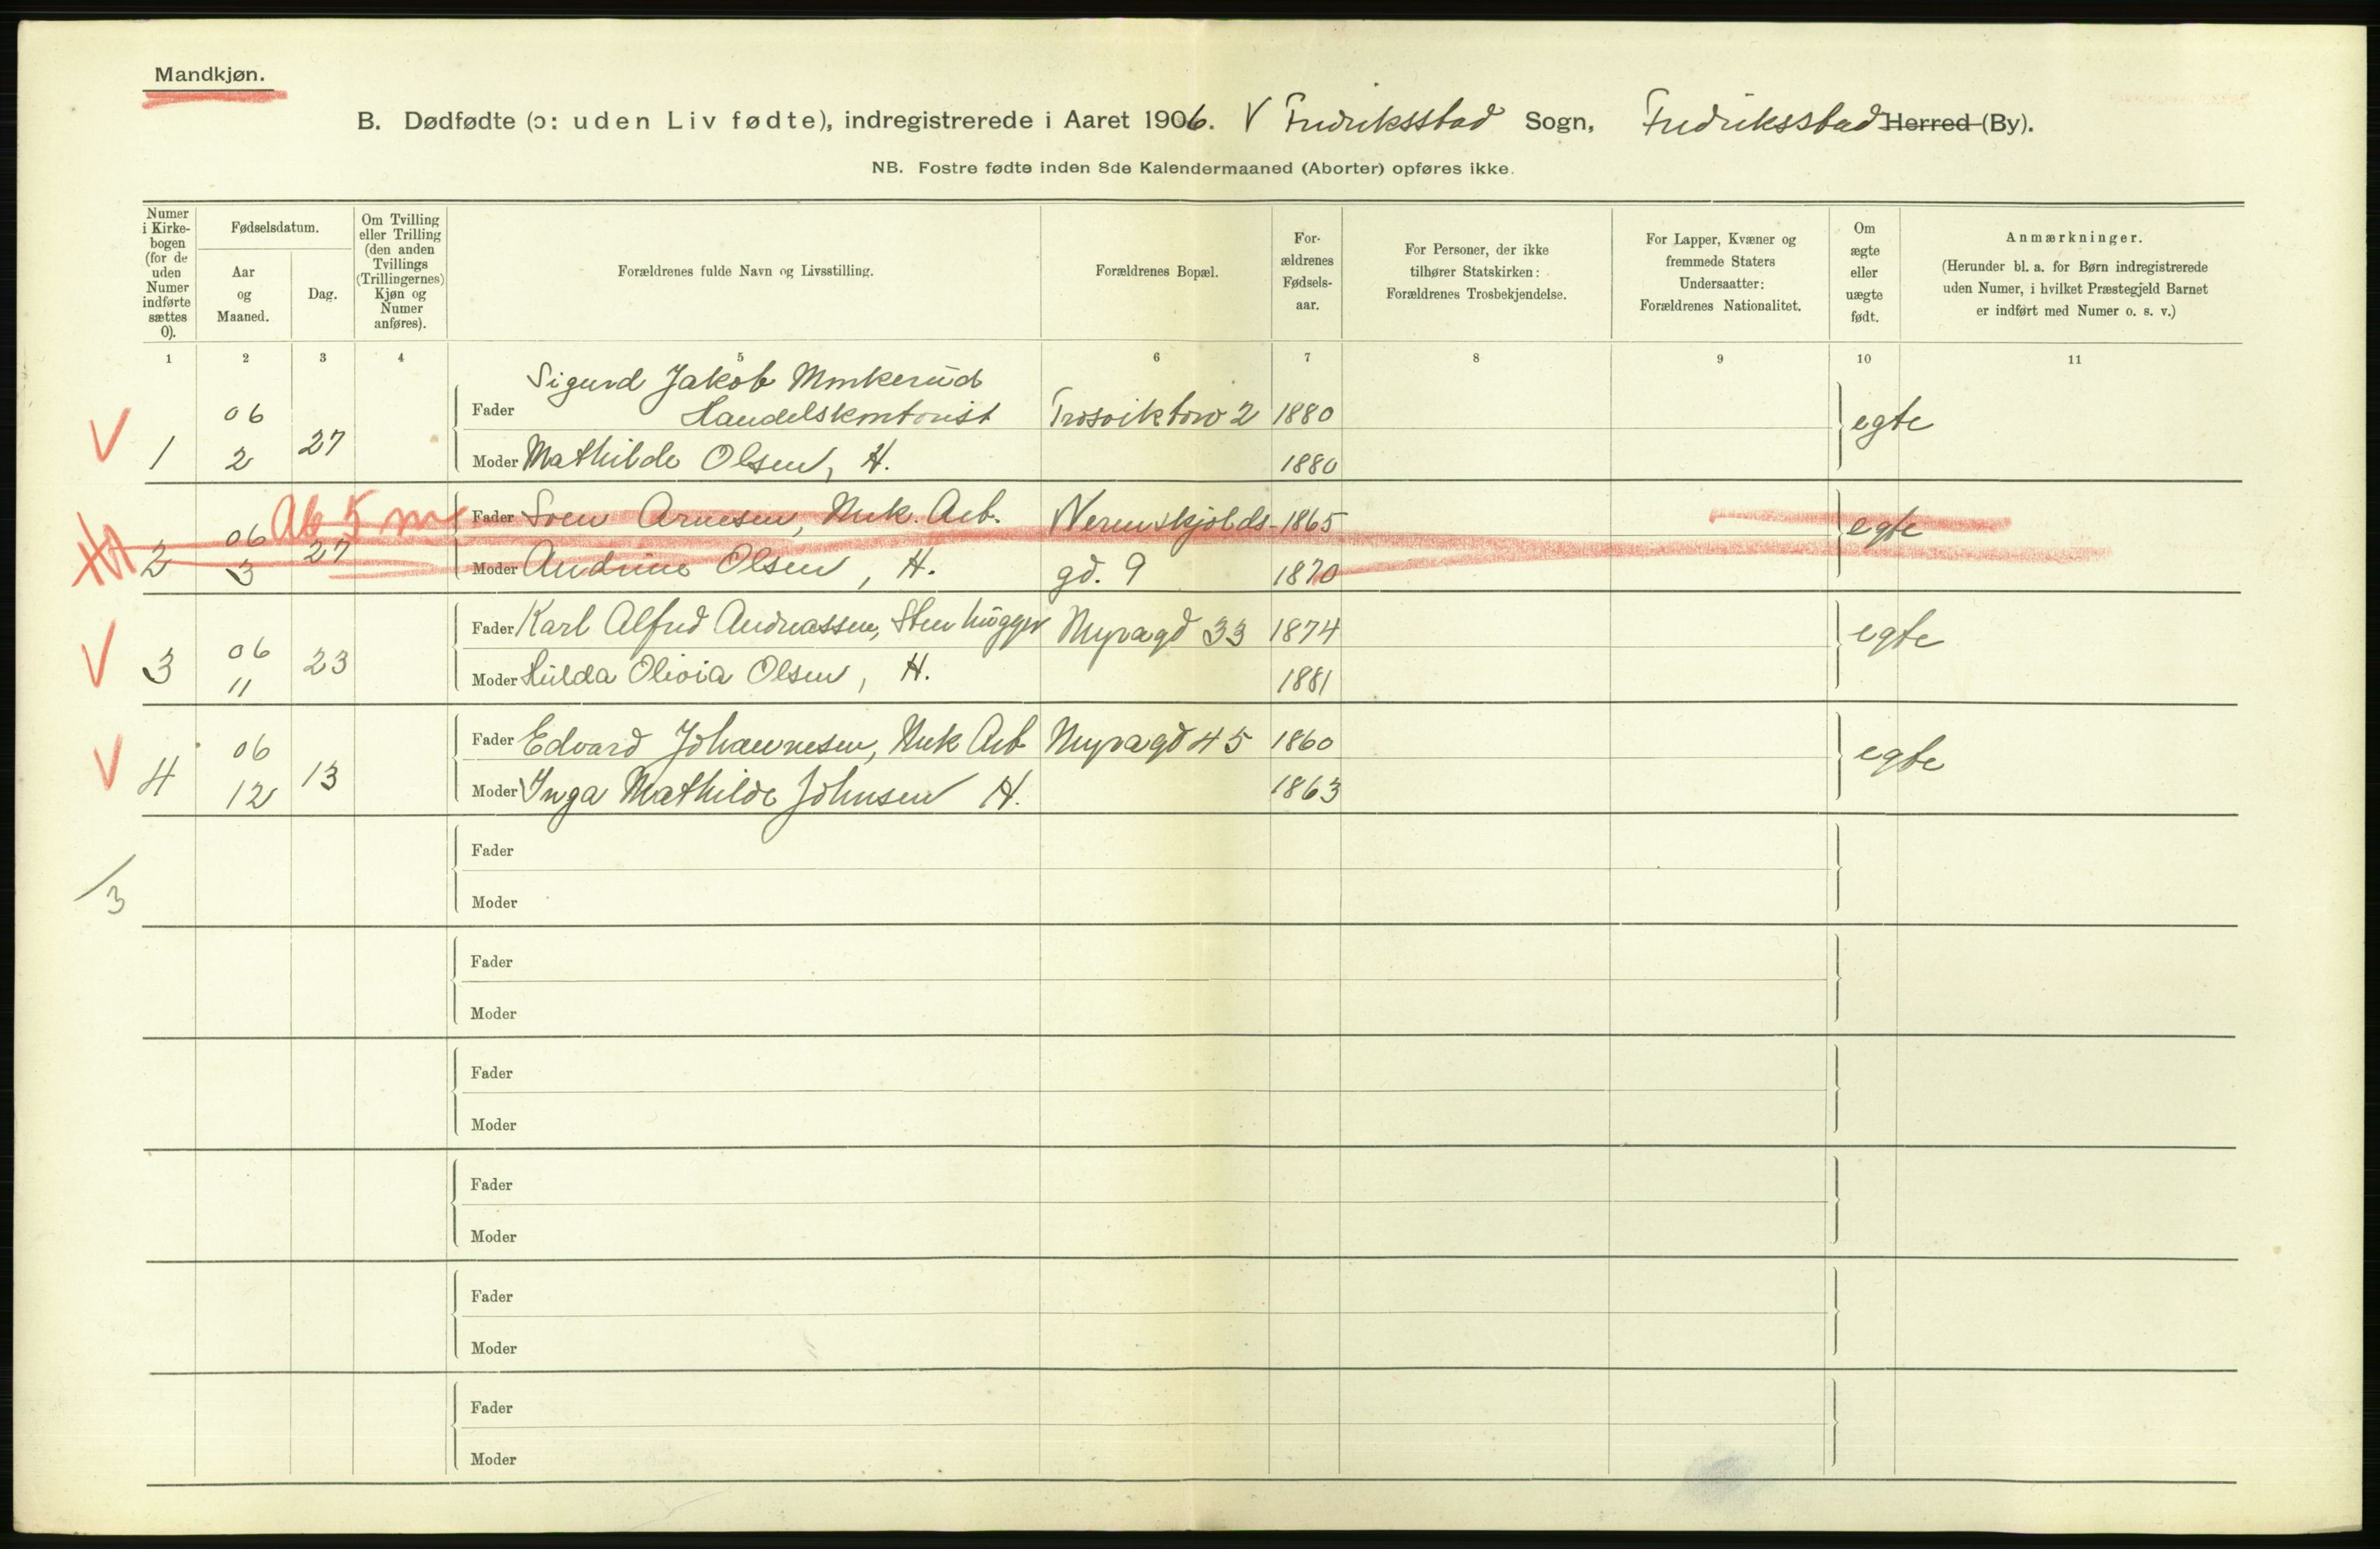 Mandkjøn.
B. Dødfødte (ɔ: uden Liv fødte), indregistrerede i Aaret 1906. V Fredriksstad Sogn, Fredriksstad Herred (By).
NB. Fostre fødte inden 8de Kalendermaaned (Aborter) opføres ikke.
Numer i Kirke-bogen (for de uden Numer indførte sættes 0).
Fødselsdatum.
Aar og Maaned.
Dag.
Om Tvilling eller Trilling (den anden Tvillings (Trillingernes) Kjøn og Numer anføres).
Forældrenes fulde Navn og Livsstilling.
Forældrenes Bopæl.
For-ældrenes Fødsels-aar.
For Personer, der ikke tilhører Statskirken: Forældrenes Trosbekjendelse.
For Lapper, Kvæner og fremmede Staters Undersaatter: Forældrenes Nationalitet.
Om ægte eller uægte født.
Anmærkninger.
(Herunder bl. a. for Børn indregistrerede uden Numer, i hvilket Præstegjeld Barnet er indført med Numer o. s. v.)
1 2 3 4 5 6 7 8 9 10 11
Sigurd Jakob Monkerud
V 1 06 2 27 Fader Handelskontorist Trosviktorv 2 1880 egte
Moder Mathilde Olsen, H. 1880
Ab 5 m
2 06 3 27 Fader Sven Arnesen, Mek. Arb. Nerenskjolds- 1865 egte
Moder Andrine Olsen, H. gd. 9 1870
V 3 06 11 23 Fader Karl Alfred Andreassen, Stenhugger Myragd 33 1874 egte
Moder Hilda Olivia Olsen, H. 1881
V 4 06 12 13 Fader Edvard Johannesen, Mek Arb Myragd 45 1860 egte
Moder Inga Mathilde Johnsen H. 1863
Fader
Moder
/3
Fader
Moder
Fader
Moder
Fader
Moder
Fader
Moder
Fader
Moder